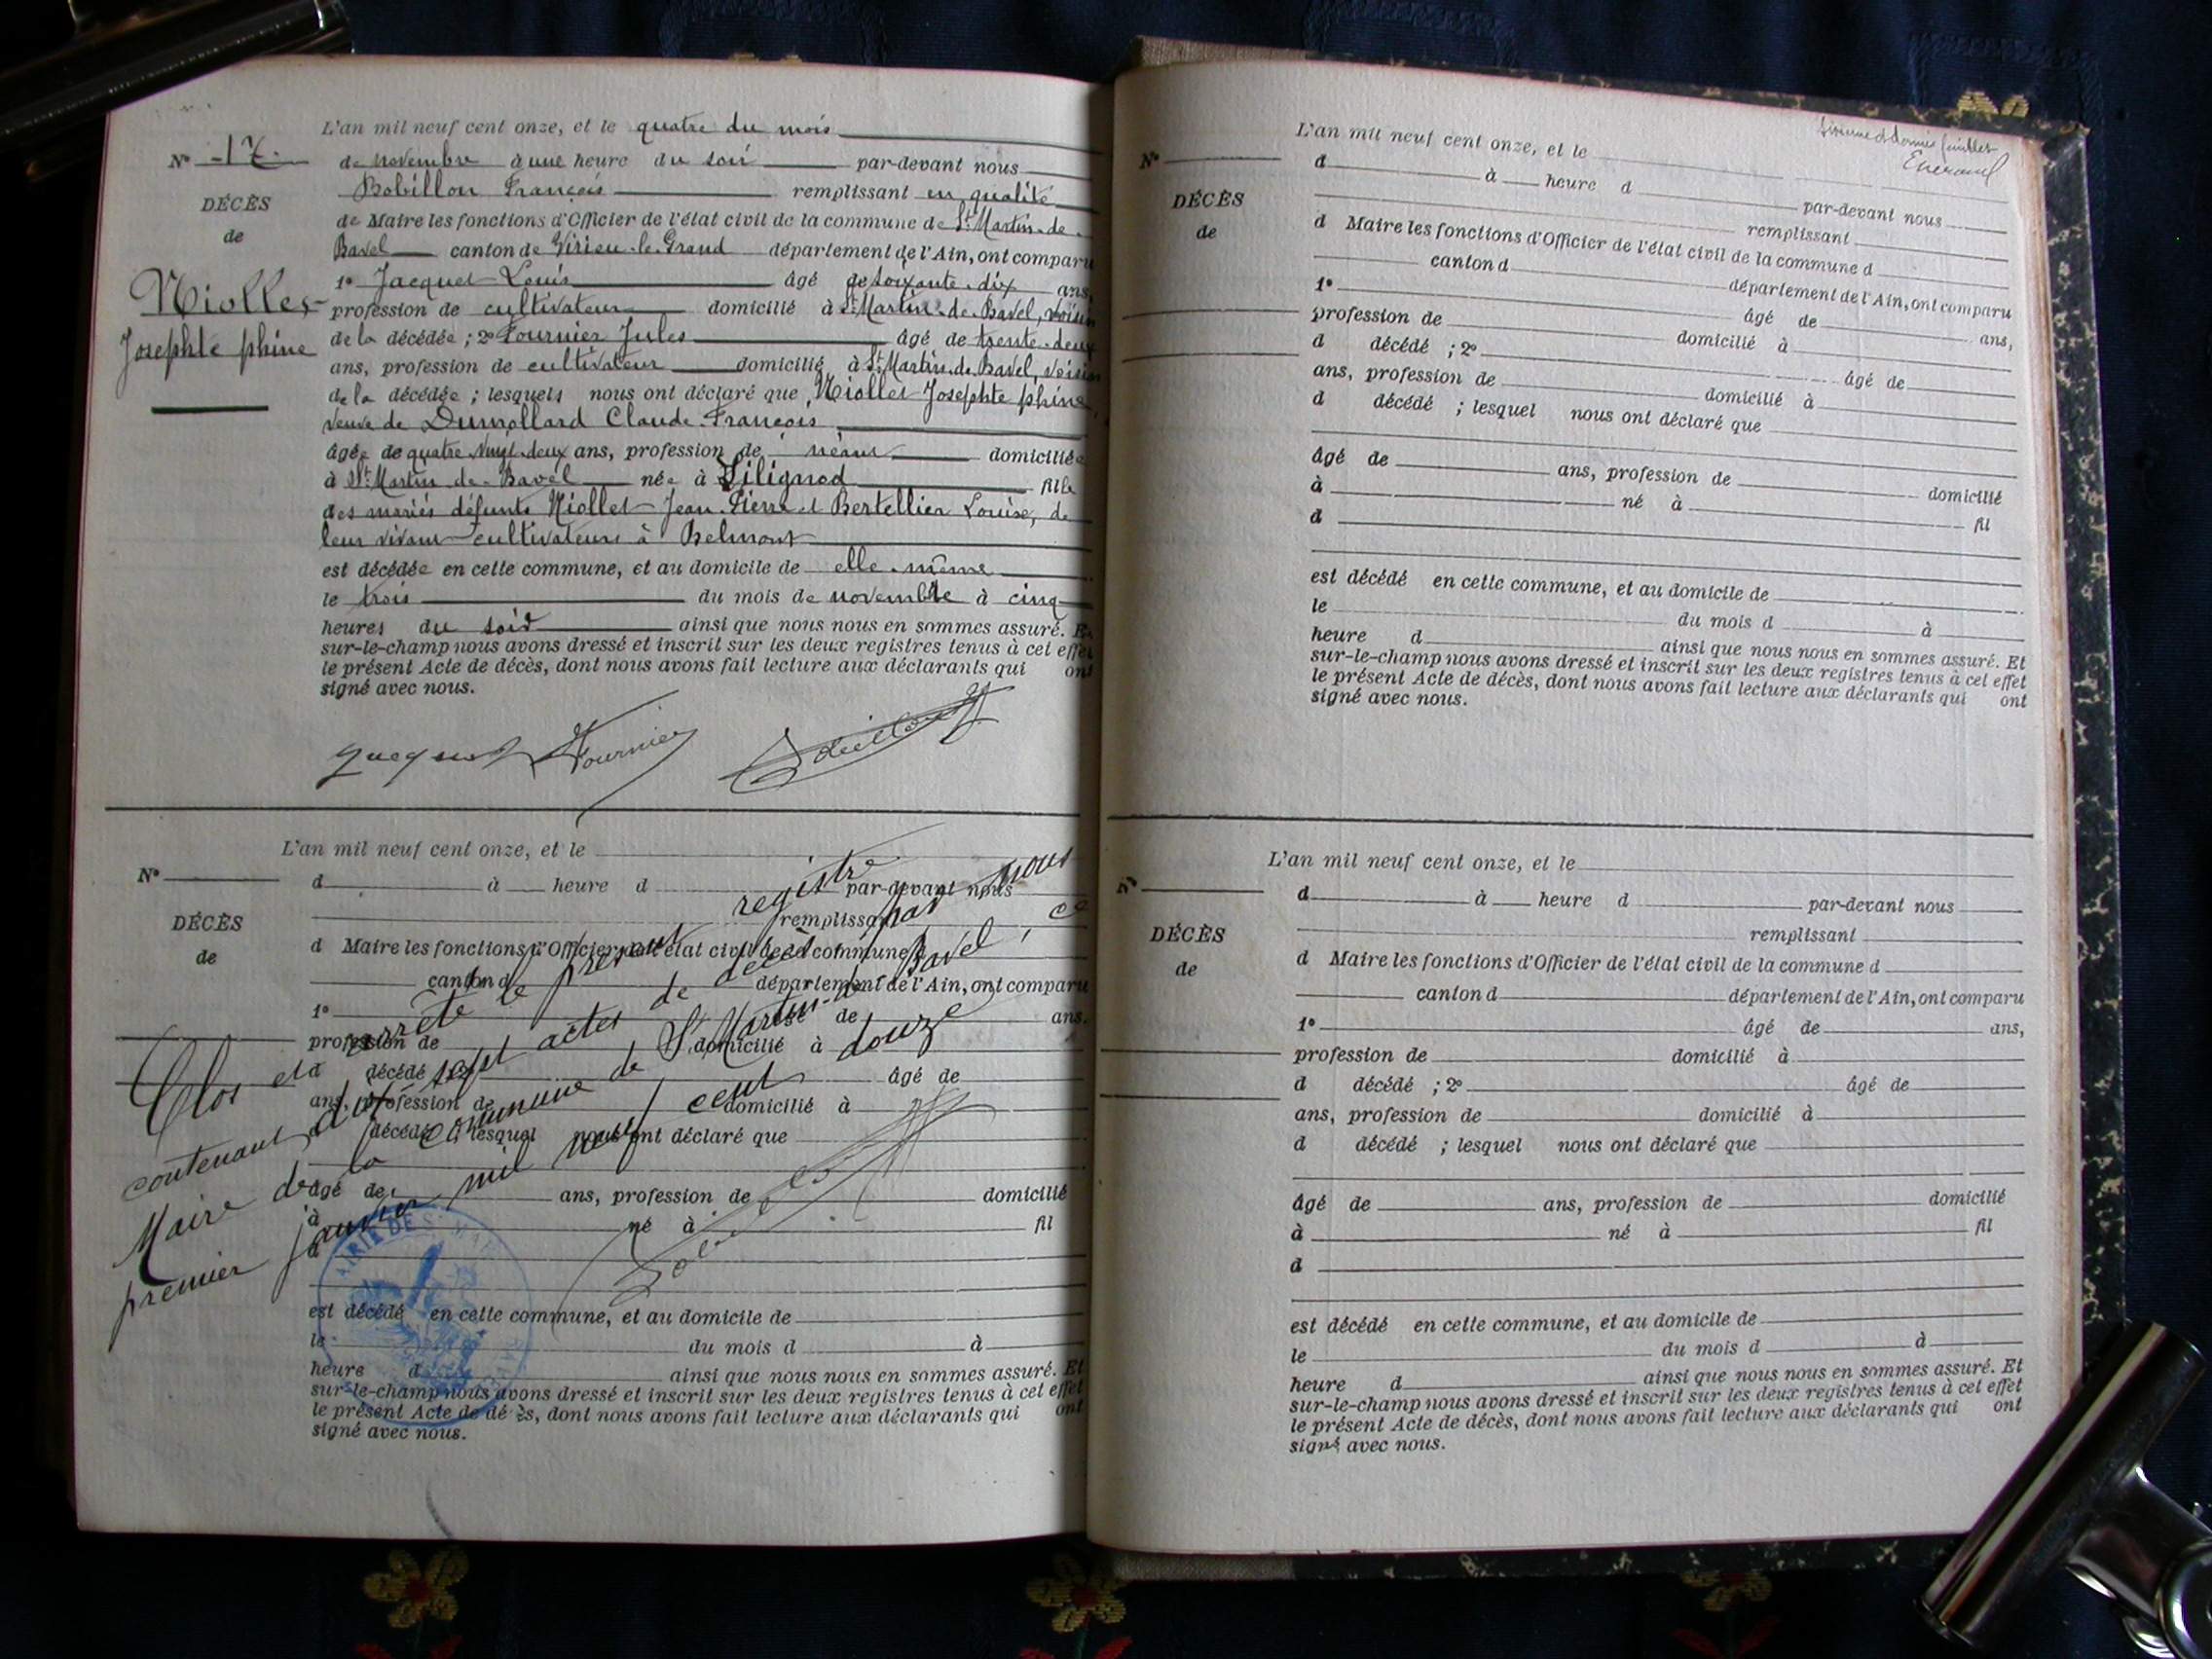 L'an mil neuf cent onze, et le quatre du mois
N° 17.
de novembre à une heure du soir par-devant nous
Bobillon François remplissant en qualité
DÉCÈS
de Maire les fonctions d'Officier de l'état civil de la commune de St Martin-de-
de
Bavel canton de Virieu-le-Grand département de l'Ain, ont comparu
1° Jacquet Louis âgé de soixante-dix ans,
Niollet
profession de cultivateur domicilié à St Martin-de-Bavel, voisin
Josephte phine
de la décédée ; 2° Fournier Jules âgé de trente-deux
ans, profession de cultivateur domicilié à St Martin-de-Bavel, voisin
de la décédée ; lesquels nous ont déclaré que Niollet Josephte phine,
veuve de Dumollard Claude-François
âgée de quatre-vingt-deux ans, profession de néant domiciliée
à St Martin-de-Bavel née à Lilignod fille
des mariés défunts Niollet Jean-Pierre et Bertellier Louise, de
leur vivant cultivateurs à Belmont
est décédée en cette commune, et au domicile de elle-même
le trois du mois de novembre à cinq
heures du soir ainsi que nous nous en sommes assuré. Et
sur-le-champ nous avons dressé et inscrit sur les deux registres tenus à cet effet
le présent Acte de décès, dont nous avons fait lecture aux déclarants qui ont
signé avec nous.
Jacquet Fournier Bobillon
L'an mil neuf cent onze, et le
N°
d à heure d par-devant nous
remplissant
DÉCÈS
d Maire les fonctions d'Officier de l'état civil de la commune d
de
canton d département de l'Ain, ont comparu
1° âgé de ans,
profession de domicilié à
d décédé ; 2° âgé de
ans, profession de domicilié à
d décédé ; lesquel nous ont déclaré que
âgé de ans, profession de domicilié
à né à fil
d
est décédé en cette commune, et au domicile de
le du mois d à
heure d ainsi que nous nous en sommes assuré. Et
sur-le-champ nous avons dressé et inscrit sur les deux registres tenus à cet effet
le présent Acte de décès, dont nous avons fait lecture aux déclarants qui ont
signé avec nous.
Clos et arrêté le présent registre
contenant dix-sept actes de décès par nous
Maire de la commune de St Martin-de-Bavel, ce
premier janvier mil neuf cent douze
et dernier feuillet
L'an mil neuf cent onze, et le
N°
d à heure d par-devant nous
remplissant
DÉCÈS
d Maire les fonctions d'Officier de l'état civil de la commune d
de
canton d département de l'Ain, ont comparu
1° âgé de ans,
profession de domicilié à
d décédé ; 2° âgé de
ans, profession de domicilié à
d décédé ; lesquel nous ont déclaré que
âgé de ans, profession de domicilié
à né à fil
d
est décédé en cette commune, et au domicile de
le du mois d à
heure d ainsi que nous nous en sommes assuré. Et
sur-le-champ nous avons dressé et inscrit sur les deux registres tenus à cet effet
le présent Acte de décès, dont nous avons fait lecture aux déclarants qui ont
signé avec nous.
L'an mil neuf cent onze, et le
N°
d à heure d par-devant nous
remplissant
DÉCÈS
d Maire les fonctions d'Officier de l'état civil de la commune d
de
canton d département de l'Ain, ont comparu
1° âgé de ans,
profession de domicilié à
d décédé ; 2° âgé de
ans, profession de domicilié à
d décédé ; lesquel nous ont déclaré que
âgé de ans, profession de domicilié
à né à fil
d
est décédé en cette commune, et au domicile de
le du mois d à
heure d ainsi que nous nous en sommes assuré. Et
sur-le-champ nous avons dressé et inscrit sur les deux registres tenus à cet effet
le présent Acte de décès, dont nous avons fait lecture aux déclarants qui ont
signé avec nous.